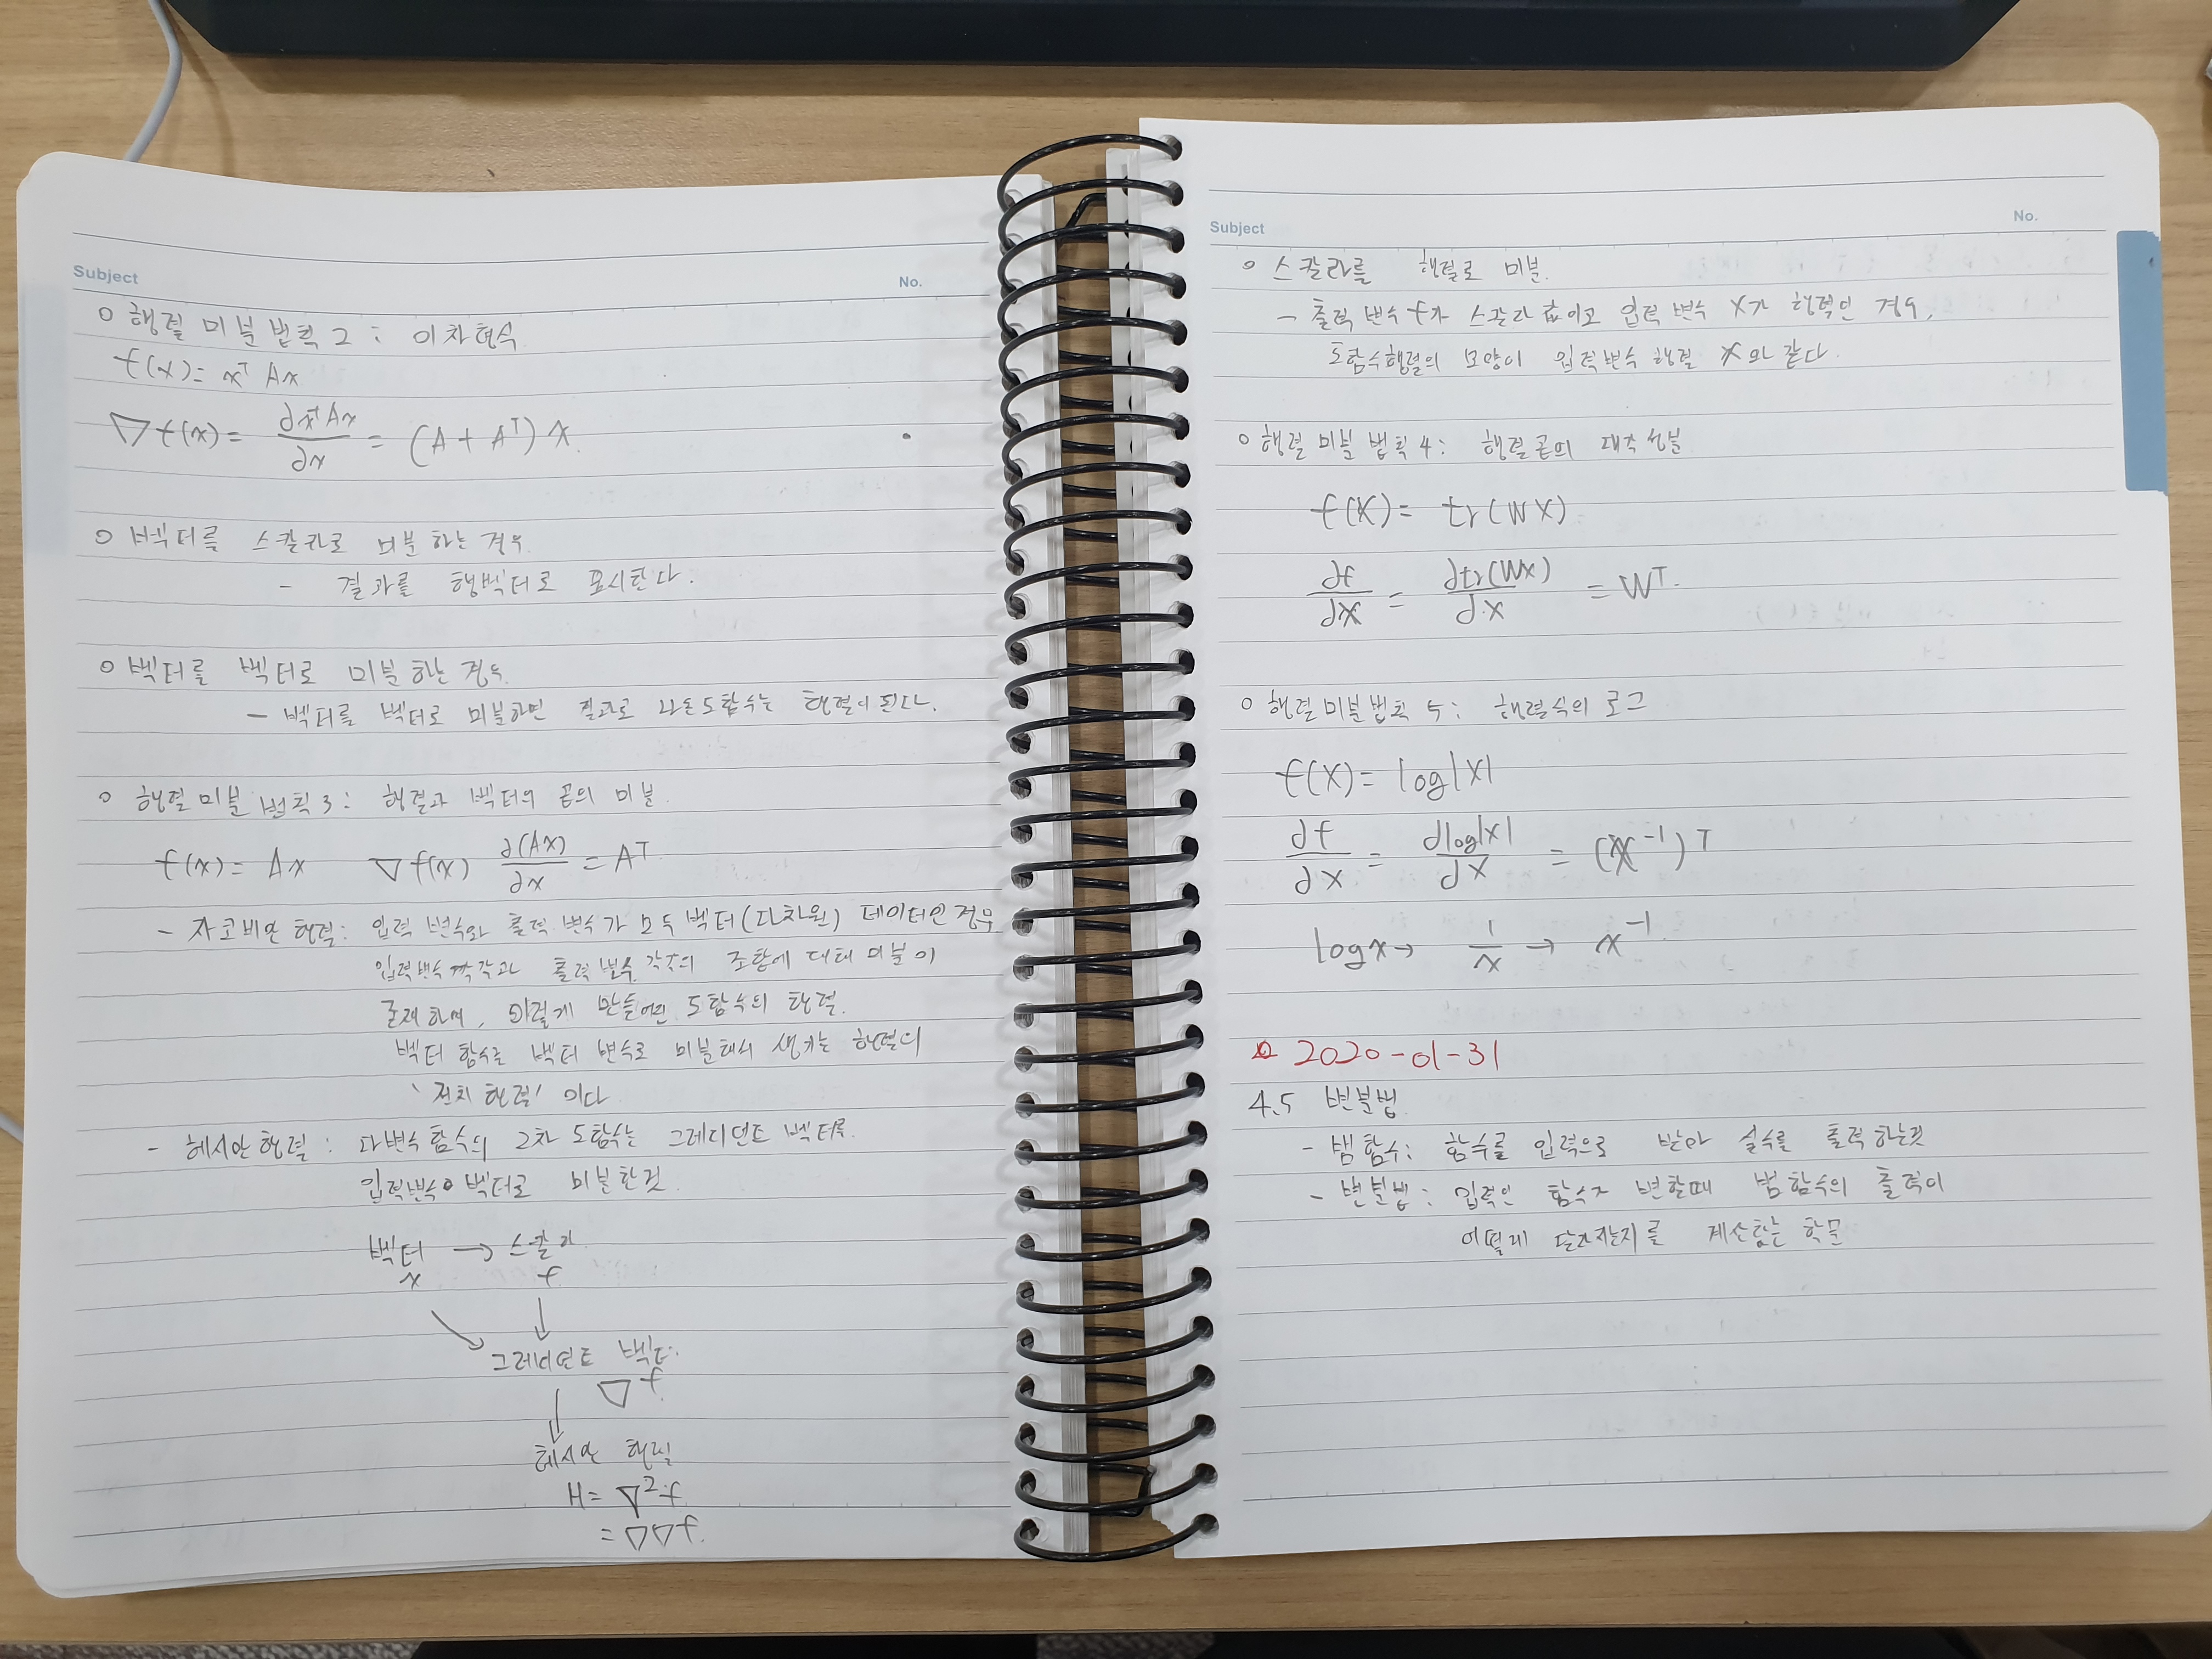 Subject No.
○ 행렬 미분 법칙 2 : 이차형식
f(x) = xᵀ Ax
∇f(x) = ∂xᵀAx / ∂x = (A + Aᵀ) x.
○ 벡터를 스칼라로 미분 하는 경우.
- 결과를 행벡터로 표시한다.
○ 벡터를 벡터로 미분 하는 경우.
- 벡터를 벡터로 미분하면 결과로 나온 도함수는 행렬이 된다.
○ 행렬 미분 법칙 3 : 행렬과 벡터의 곱의 미분.
f(x) = Ax ∇f(x) ∂(Ax) / ∂x = Aᵀ
- 자코비안 행렬 : 입력 변수와 출력 변수가 모두 벡터(다차원) 데이터인 경우
입력변수 각각과 출력변수 각각의 조합에 대해 미분이
존재하며, 이렇게 만들어진 도함수의 행렬.
벡터 함수를 벡터 변수로 미분해서 생기는 행렬의
'전치 행렬' 이다
- 헤시안 행렬 : 다변수 함수의 2차 도함수는 그레디언트 벡터를
입력변수 벡터로 미분한것.
벡터 → 스칼라
x f
그레디언트 벡터.
∇f
헤시안 행렬
H = ∇²f
= ∇∇f.
Subject No.
○ 스칼라를 행렬로 미분.
- 출력 변수 f가 스칼라 값이고 입력 변수 X가 행렬인 경우,
도함수행렬의 모양이 입력변수 행렬 X와 같다.
○ 행렬 미분 법칙 4 : 행렬 곱의 대각 성분
f(X) = tr(WX)
∂f / ∂X = ∂tr(WX) / ∂X = Wᵀ.
○ 행렬 미분 법칙 5 : 행렬식의 로그
f(X) = log|X|
∂f / ∂X = ∂log|X| / ∂X = (X⁻¹)ᵀ
log x → 1/x → x⁻¹.
2020-01-31
4.5 변분법
- 범함수 : 함수를 입력으로 받아 실수를 출력하는것
- 변분법 : 입력인 함수가 변할때 범함수의 출력이
어떻게 달라지는지를 계산하는 학문